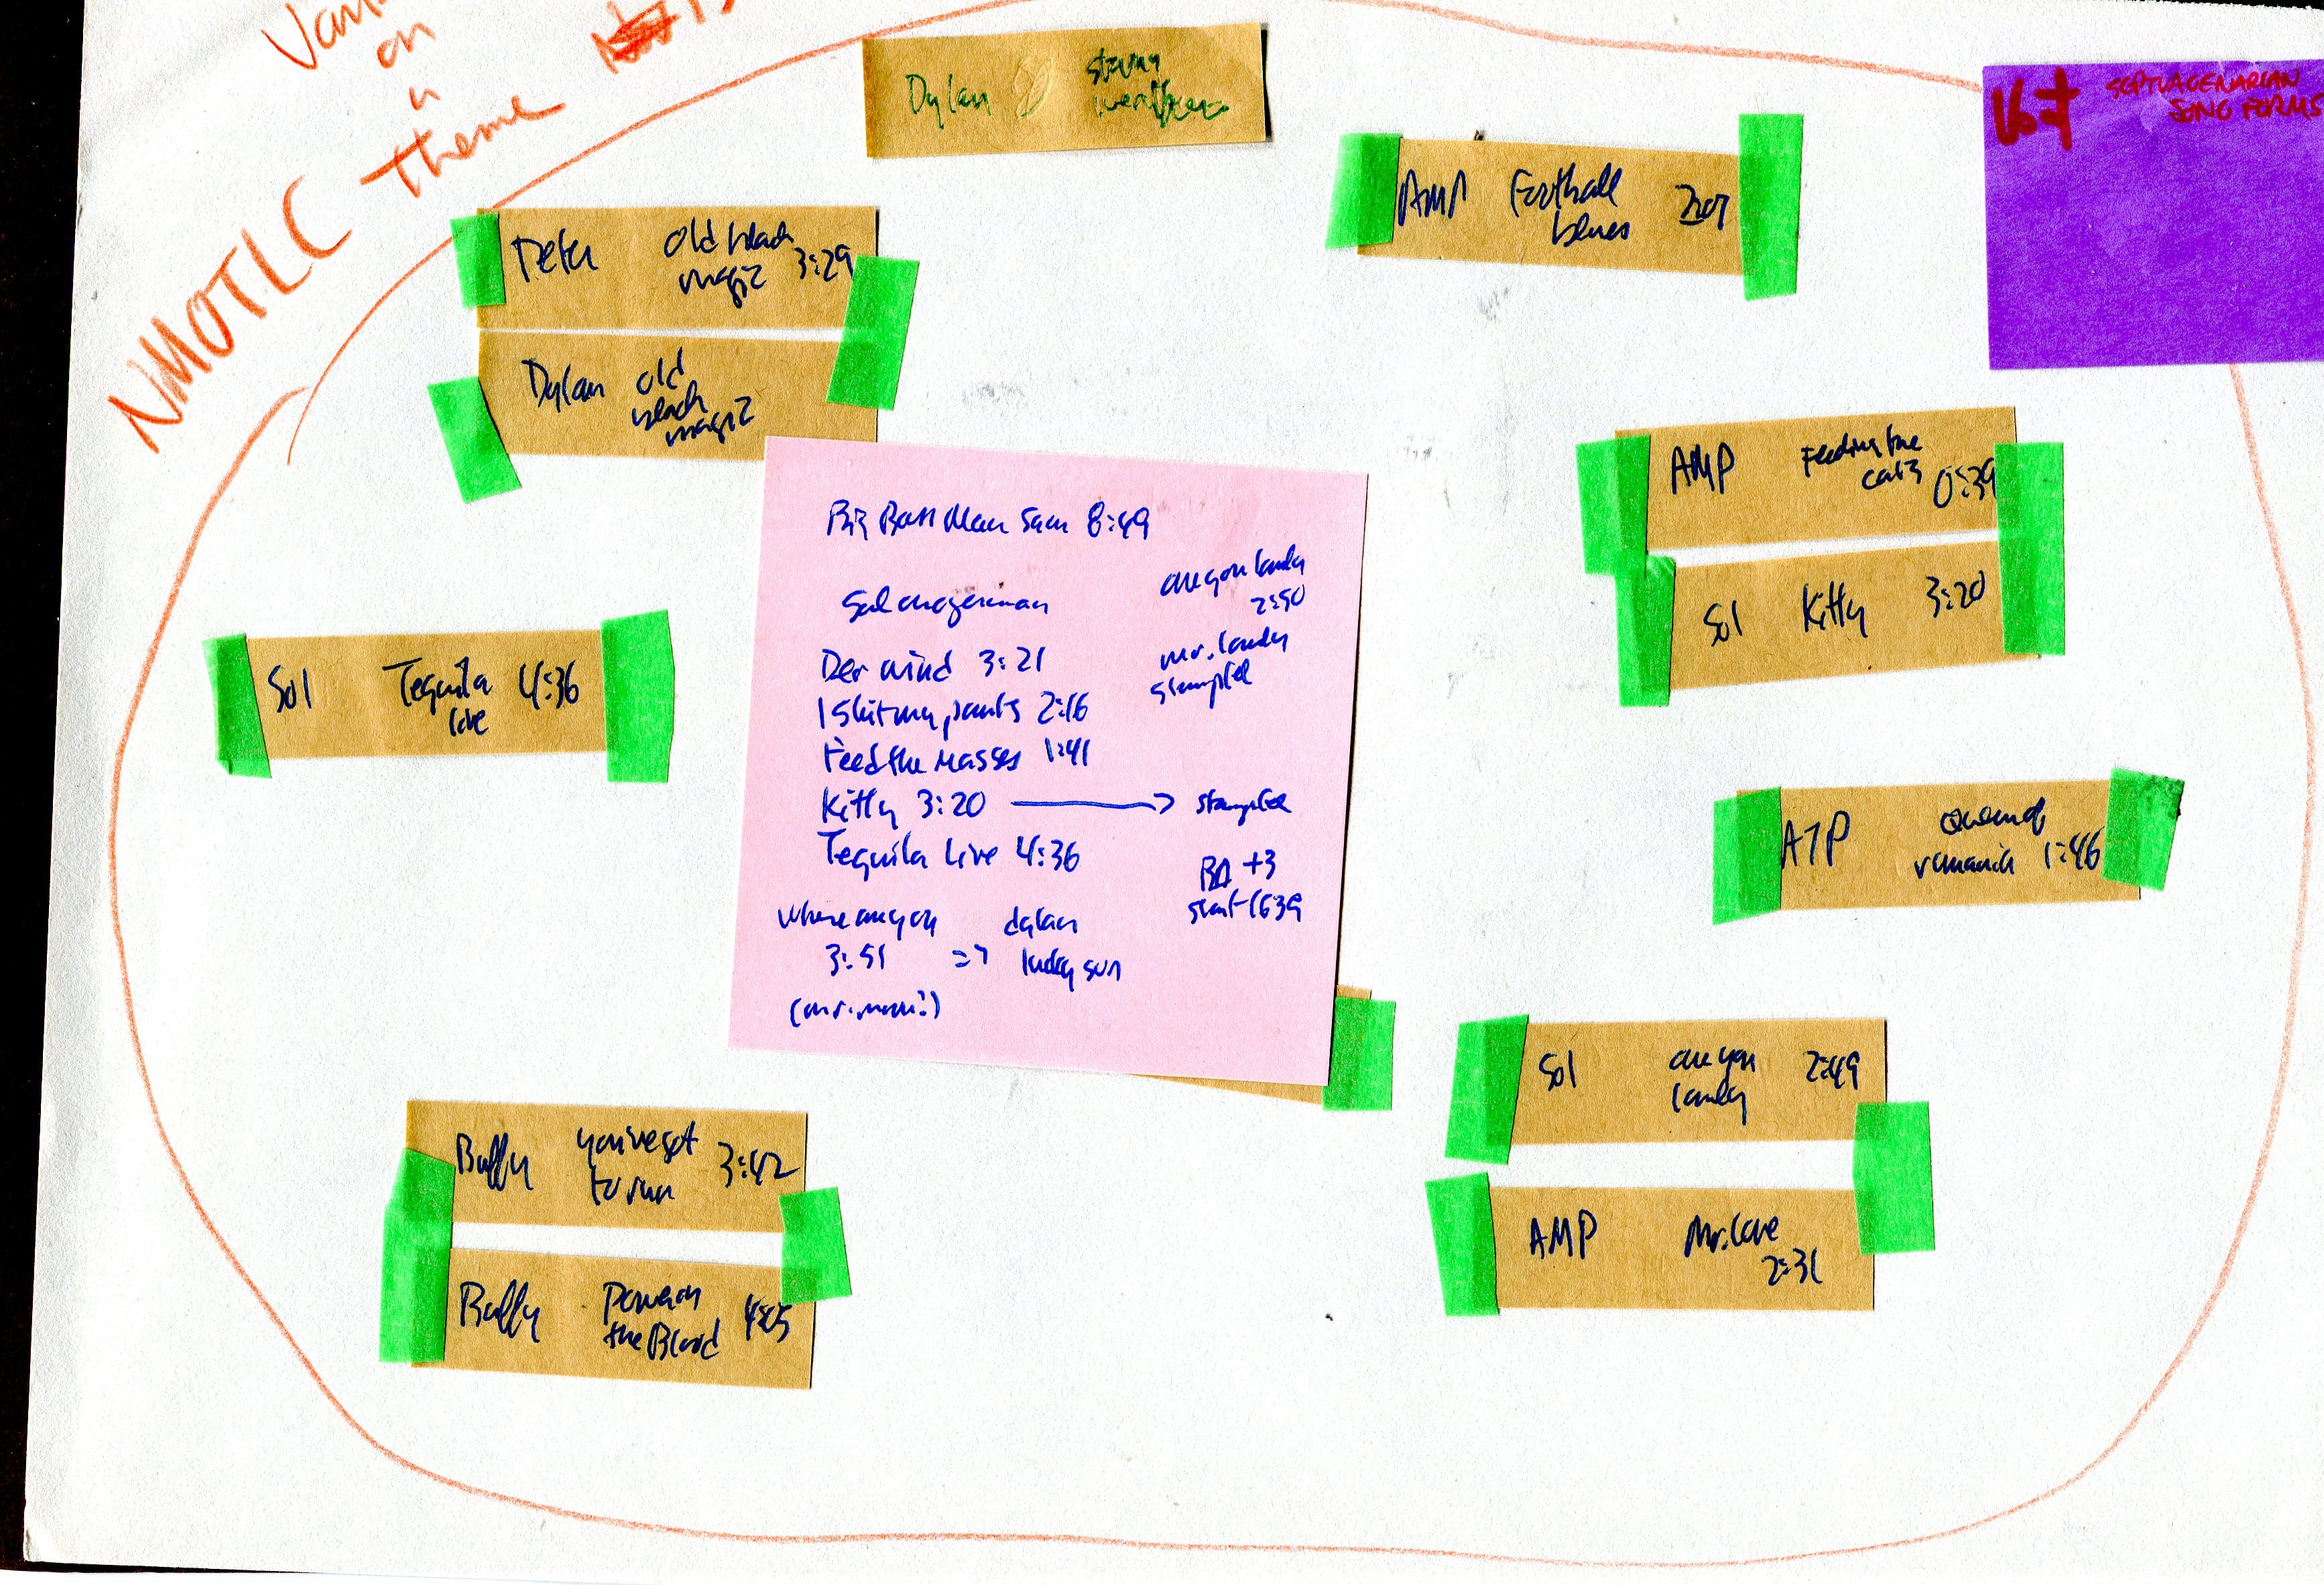 on
a
theme
NMOTLC
Dylan stormy
weather
V67 SEPTUAGENARIAN
SONG FORMS
AMP Football
blues
Peter old black
magic 3:29
Dylan old
black
magic
AMP Feeding the
cats 0:39
Sol Kitty 3:20
Sol Tequila 4:36
live
Big Boss Man 8:49
are you lonely
2:50
Der Wind 3:21
mr. lonely
I shit my pants 2:16
stampfel
Feed the Masses 1:41
Kitty 3:20 → stampfel
Tequila Live 4:36
BA +3
start 1639
where are you dylan
3:51 => lucky sun
(mr. moon?)
1:46
Sol are you 2:49
lonely
AMP Mr. love
2:31
Buffy you've got
to run 3:42
Buffy Power in
the Blood